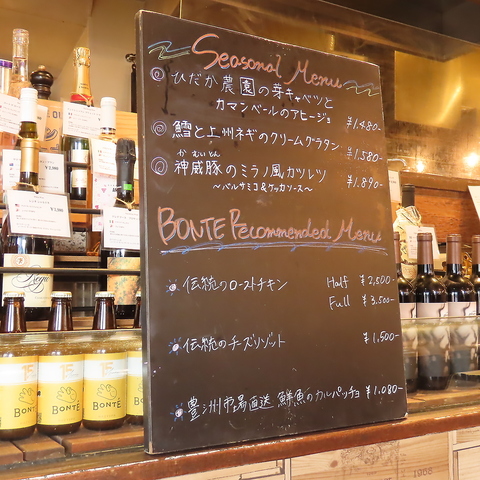 Seasonal Menu
ひだか農園の芽キャベツと
カマンベールのアヒージョ ¥1,480-
鱈と上州ネギのクリームグラタン ¥1,580-
かむいとん
神威豚のミラノ風カツレツ ¥1,890-
〜バルサミコ&ケッカソース〜
BONTE Recommended Menu
伝統のローストチキン Half ¥2,500-
Full ¥3,500-
伝統のチーズリゾット ¥1,500-
豊洲市場直送 鮮魚のカルパッチョ ¥1,080-
BONTE
BONTE
BONTE